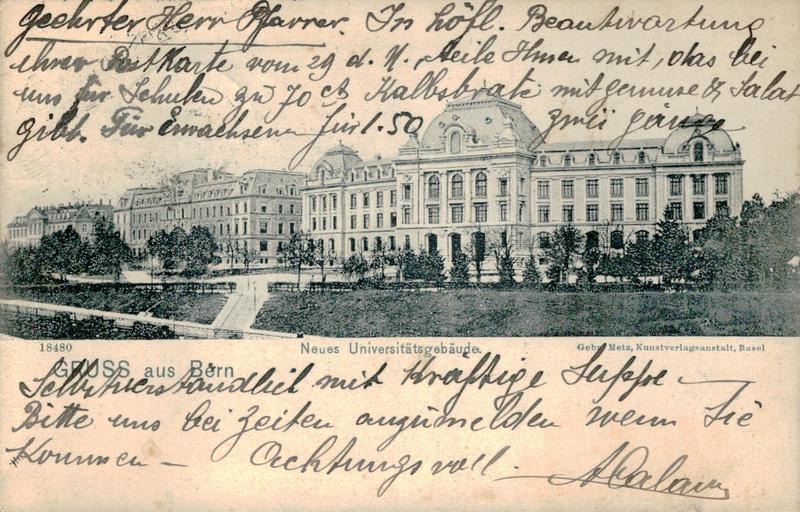 Geehrter Herr Pfarrer. In höfl. Beantwortung
ihrer Postkarte vom 29 d. M. teile Ihnen mit, das bei
uns für Schulen zu 70 cts Kalbsbrate mit gemuse & Salat
gibt. Für Erwachsene für 1.50 zwei gänge
18480
Neues Universitätsgebäude.
Gebr. Metz, Kunstverlagsanstalt, Basel
GRUSS aus Bern
Selbstverständlich mit Kräftige Suppe –
Bitte uns bei Zeiten anzumelden wenn Sie
Kommen – Achtungsvoll –